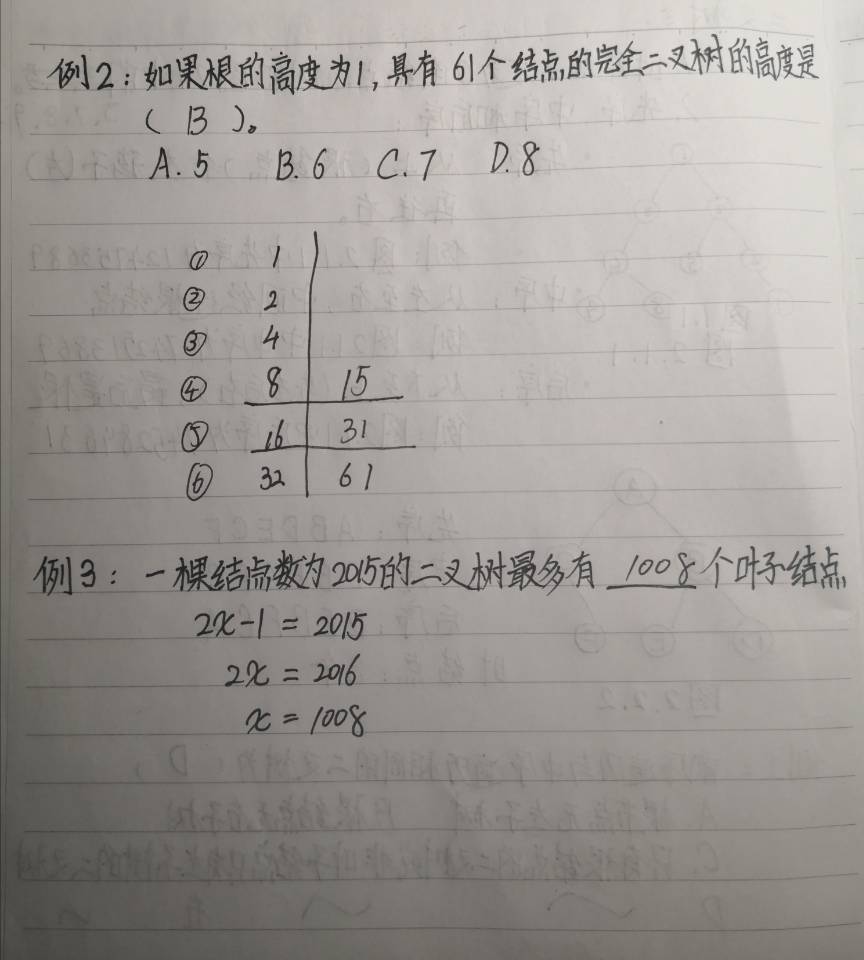 例2：如果根的高度为1，具有61个结点的完全二叉树的高度是
（ B ）。
A. 5 B. 6 C. 7 D. 8
① 1
② 2
③ 4
④ 8 15
⑤ 16 31
⑥ 32 61
例3：一棵结点数为2015的二叉树最多有 1008 个叶子结点
2x-1 = 2015
2x = 2016
x = 1008